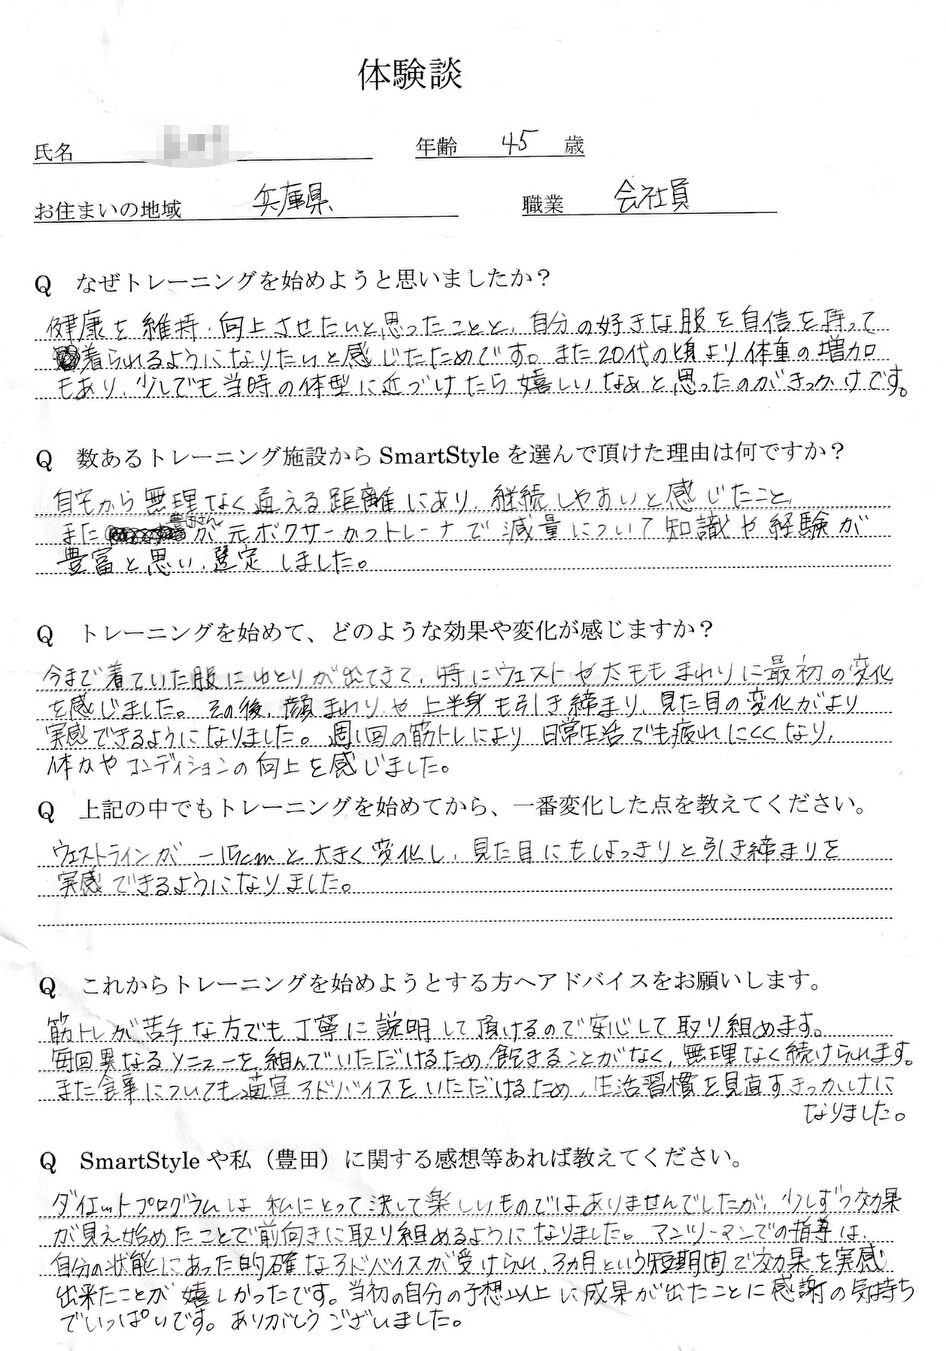 体験談
氏名 年齢 45 歳
お住まいの地域 兵庫県 職業 会社員
Q なぜトレーニングを始めようと思いましたか？
健康を維持、向上させたいと思ったことと、自分の好きな服を自信を持って
着られるようになりたいと感じたためです。また20代の頃より体重の増加
もあり、少しでも当時の体型に近づけたら嬉しいなぁと思ったのがきっかけです。
Q 数あるトレーニング施設から SmartStyle を選んで頂けた理由は何ですか？
自宅から無理なく通える距離にあり、継続しやすいと感じたこと、
また豊田さんが元ボクサーかつトレーナで減量について知識や経験が
豊富と思い、選定しました。
Q トレーニングを始めて、どのような効果や変化が感じますか？
今まで着ていた服にゆとりが出てきて、特にウェストや太ももまわりに最初の変化
を感じました。その後、顔まわりや上半身も引き締まり、見た目の変化がより
実感できるようになりました。週1回の筋トレにより、日常生活でも疲れにくくなり、
体力やコンディションの向上を感じました。
Q 上記の中でもトレーニングを始めてから、一番変化した点を教えてください。
ウェストラインが －15cmと大きく変化し、見た目にもはっきりと引き締まりを
実感できるようになりました。
Q これからトレーニングを始めようとする方へアドバイスをお願いします。
筋トレが苦手な方でも丁寧に説明して頂けるので安心して取り組めます。
毎回異なるメニューを組んでいただけるため、飽きることがなく、無理なく続けられます。
また食事についても適宜アドバイスをいただけるため、生活習慣を見直すきっかけに
なりました。
Q SmartStyle や私（豊田）に関する感想等あれば教えてください。
ダイエットプログラムは私にとって決して楽しいものではありませんでしたが、少しずつ効果
が見え始めたことで前向きに取り組めるようになりました。マンツーマンでの指導は、
自分の状態にあった的確なアドバイスが受けられ、3ヵ月という短期間で効果を実感
出来たことが嬉しかったです。当初の自分の予想以上に成果が出たことに感謝の気持ち
でいっぱいです。ありがとうございました。